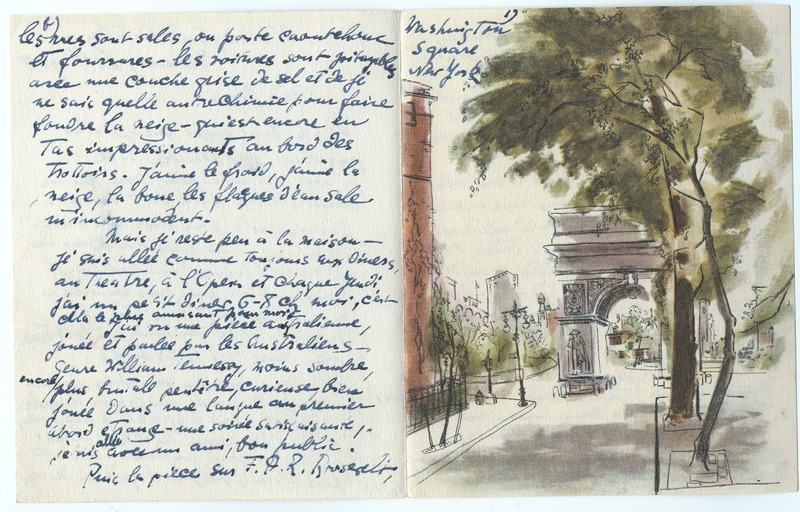 6)
les rues sont sales, on porte caoutchouc
et fourrures – les voitures sont pitoyables
avec une couche grise de sel et de je
ne sais quelle autre chimie pour faire
fondre la neige – qui est encore en
tas impressionants au bord des
trottoirs. J'aime le froid, j'aime la
neige, la boue, les flaques d'eau sale
m'incommodent.
Mais je reste peu à la maison –
je suis allée comme toujours aux diners,
au Theatre, à l'Opera et chaque Jeudi
j'ai un petit diner, 6–8 ch. moi, c'est
le plus amusant pour moi
J'ai vu une pièce australienne,
jouée et parlée par les Australiens –
Genre William Tennessy, moins sombre,
encore plus brutall peutêtre, curieuse, bien
jouée dans une langue au premier
abord étrange – une soirée
je suis allée avec un ami, bon public.
Puis la pièce sur F. D. R.
Washington
Square
New York